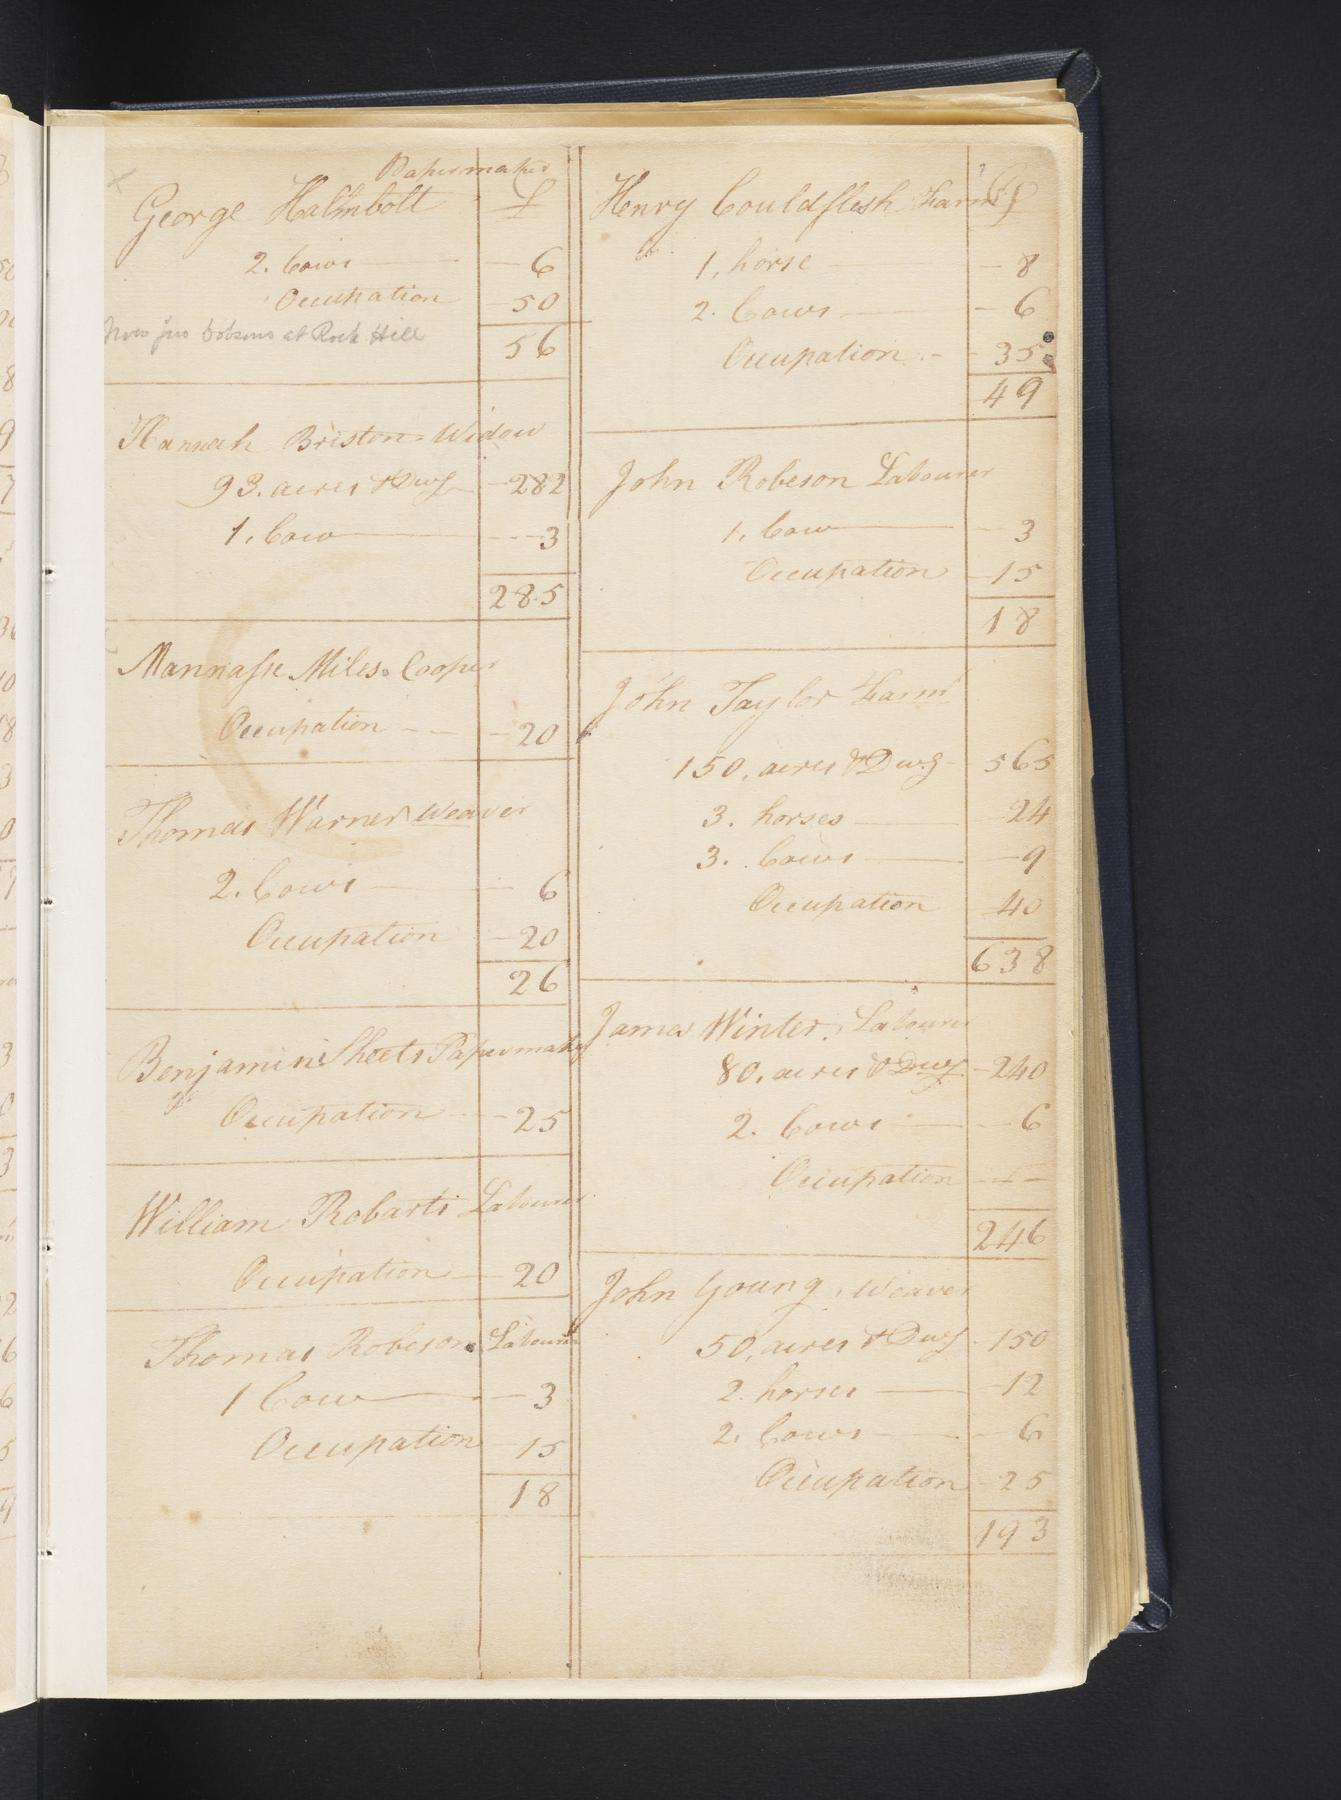 Papermaker
George Halmbolt £
2. Cows 6
Occupation 50
at Rock Hill
56
Hannah Briston Widow
93. acres & Dwg 282
1. Cow 3
285
Mannasse Miles. Cooper
Occupation 20
Thomas Warner Weaver
2. Cows 6
Occupation 20
26
Benjamin Sheets Papermaker
Occupation 25
William Robarts Labourer
Occupation 20
Thomas Robeson Labourer
1 Cow 3
Occupation 15
18
Henry Couldflesh Farmr £
1. horse 8
2. Cows 6
Occupation 35
49
John Robeson Labourer
1. Cow 3
Occupation 15
18
John Taylor Farmr
150. acres & Dwg 565
3. horses 24
3. Cows 9
Occupation 40
638
James Winter. Labourer
80. acres & Dwg 240
2. Cows 6
Occupation
246
John Young. Weaver
50. acres & Dwg 150
2. horses 12
2. Cows 6
Occupation 25
193